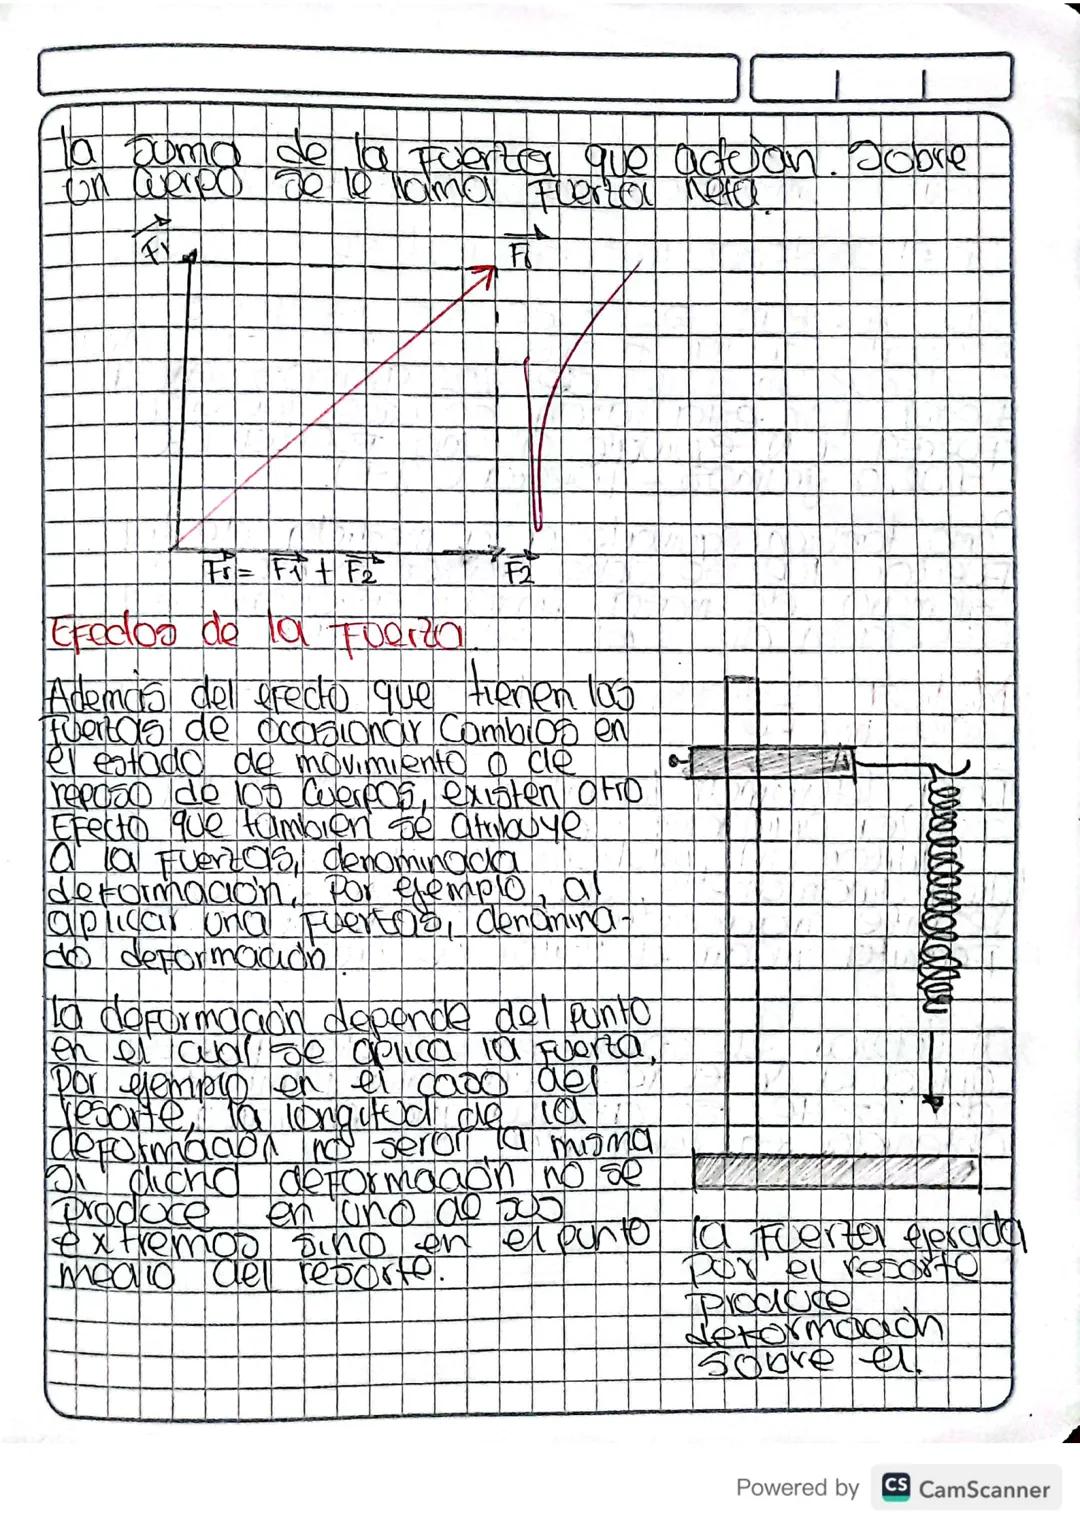 la suma de la Fuerza que actúan. Sobre
un cuerpo se le llama Fuerza neta.
F1
Fr
Fr = F1 + F2
F2
Efectos de la Fuerza.
Además del efecto que tienen las
fuerzas de ocasionar Cambios en
el estado de movimiento o de
reposo de los Cuerpos, existen otro
Efecto que también se atribuye
a la Fuerzas, denominada
deformación, Por ejemplo, al
aplicar una Fuerzas, denomina-
do deformación
La deformación depende del punto
en el cual se aplica la Fuerza,
Por ejemplo en el caso del
resorte, la longitud de la
deformación no será la misma
Si dicho deformación no se
produce en uno de sus
extremos sino en el punto
medio del resorte.
la Fuerza ejercida
Por el resorte
Produce
deformación
Sobre el.
Powered by CS CamScanner